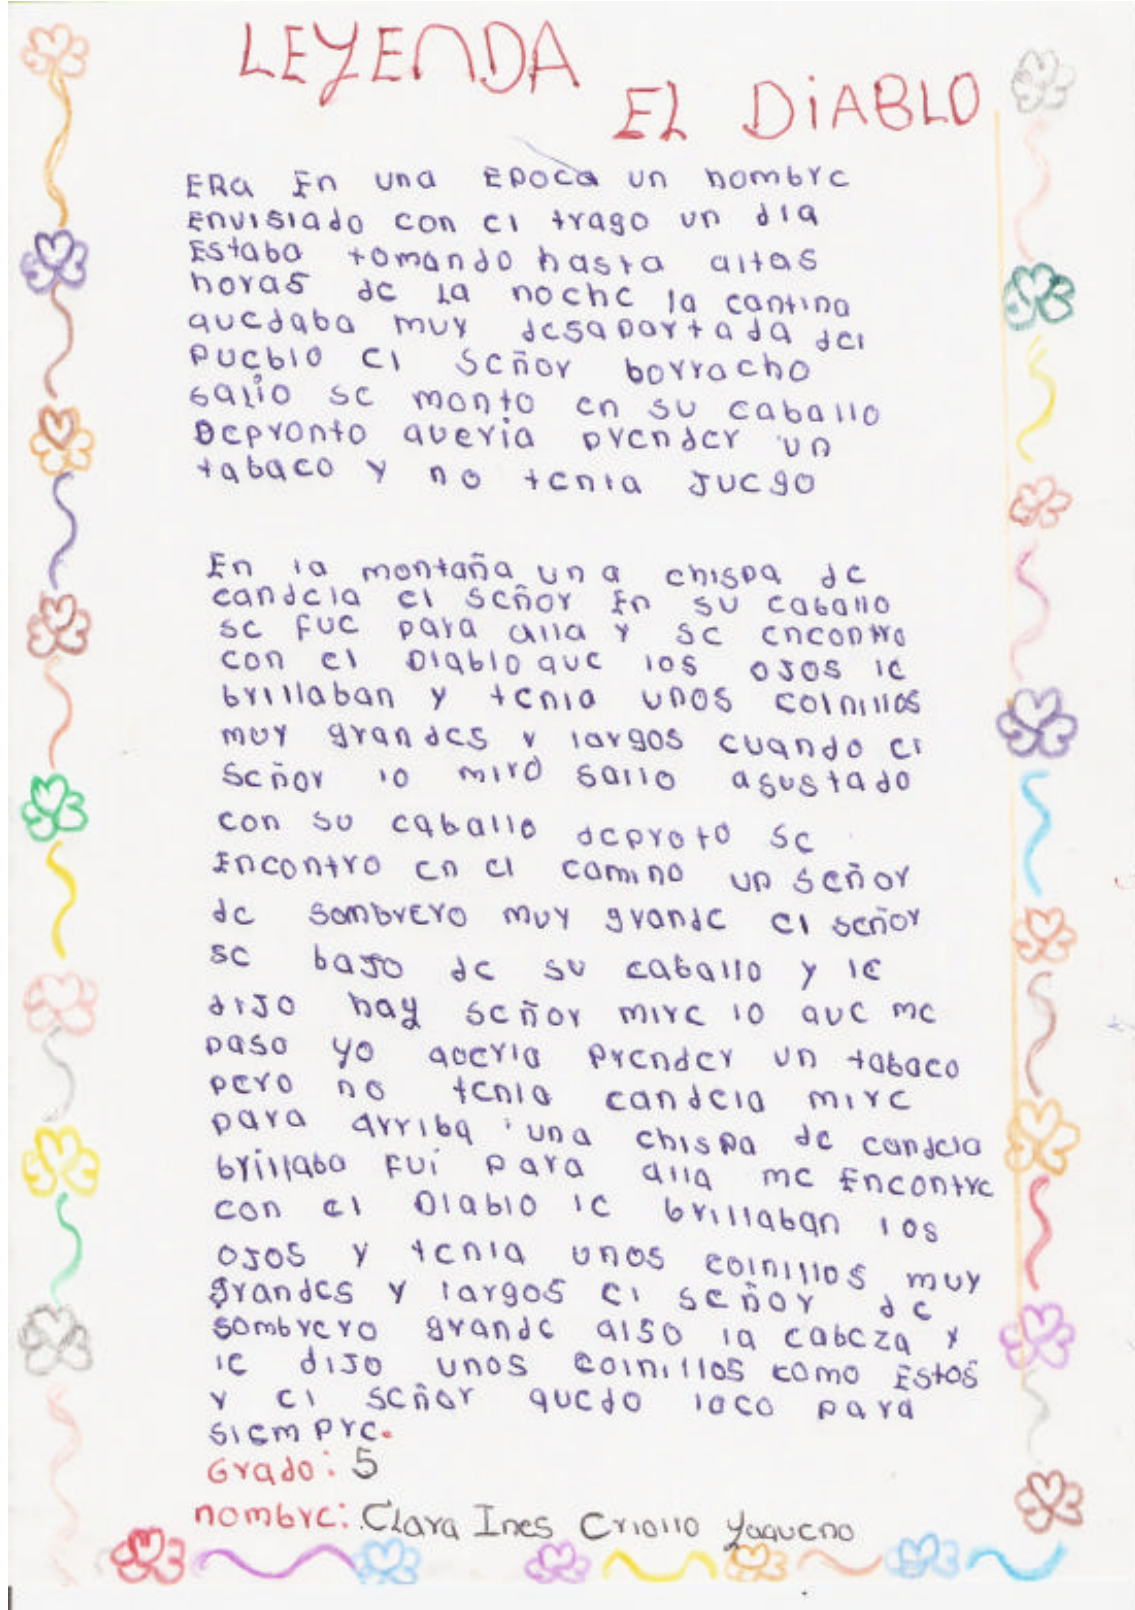 LEYENDA
EL DiABLO
ERa En una EPOCa un hombre
Envisiado con el trago un dia
Estaba tomando hasta altas
horas de la noche la cantina
quedaba muy desapartada del
Pueblo el señor borracho
salio se monto en su caballo
Depronto queria prender un
tabaco y no tenia Juego
En la montaña una chispa de
candela el señor En su caballo
se fue para alla y se encontro
con el Diablo que los ojos le
brillaban y tenia unos colnillos
muy grandes y largos cuando el
señor lo miro salio asustado
con su caballo deproto se
Encontro en el camino un señor
de sombrero muy grande el señor
se bajo de su caballo y le
dijo hay señor mire lo que me
paso yo queria Prender un tabaco
pero no tenia candela mire
para arriba una chispa de candela
brillaba fui para alla me Encontre
con el Diablo le brillaban los
ojos y tenia unos colnillos muy
grandes y largos el señor de
sombrero grande also la cabeza y
le dijo unos colnillos como Estos
y el señor quedo loco para
siempre.
Grado: 5
nombre: Clara Ines Criollo Yaqueno